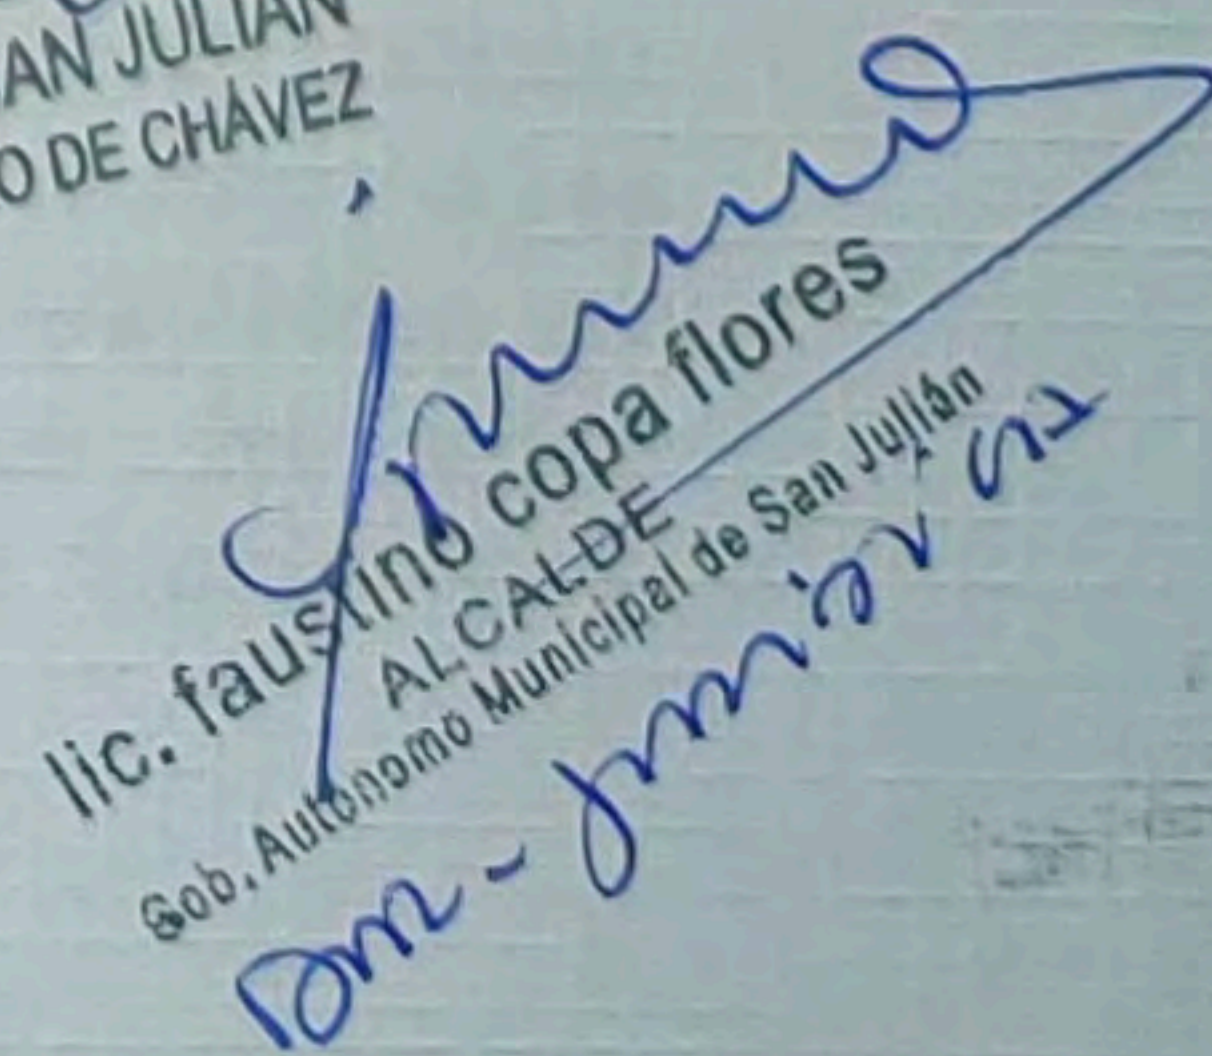 AN JULIAN
O DE CHÁVEZ
lic. faustino copa flores
ALCALDE
Gob. Autonomo Municipal de San Julián